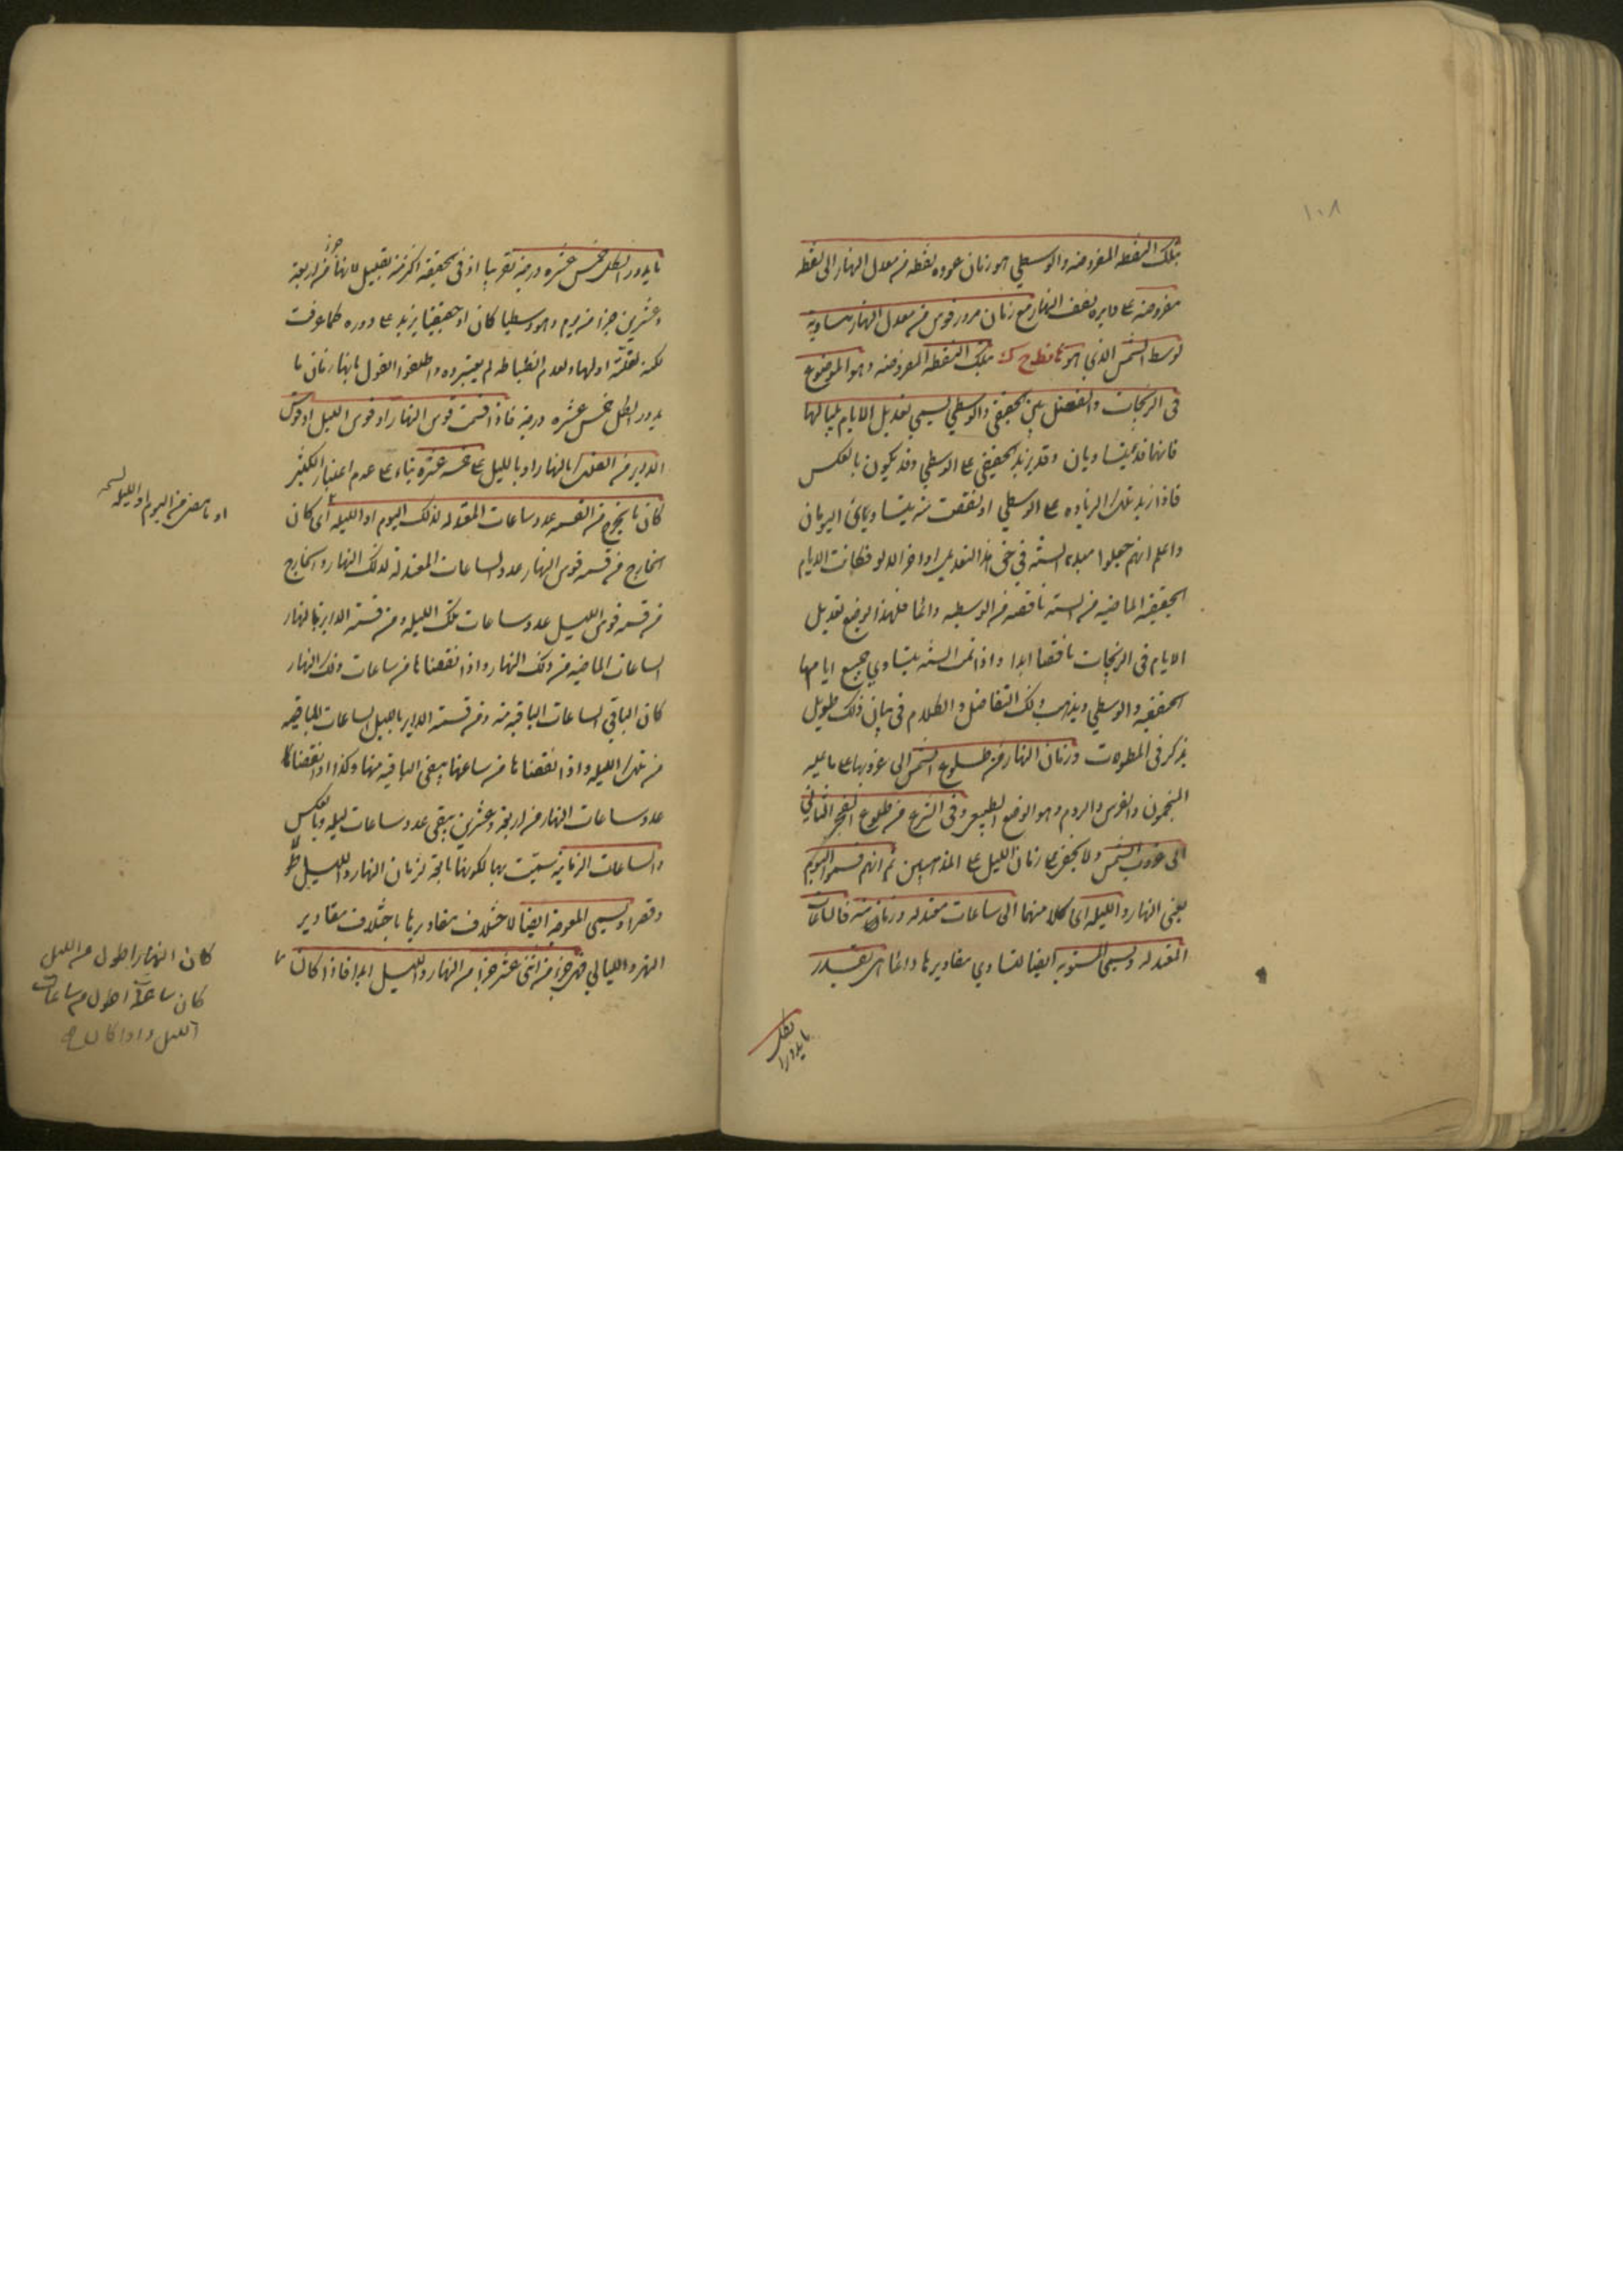 ١٠٨
بتلك النقطه المفروضه والوسطي هو زمان عوده نقطه من معدل النهار الى نقطه
مفروضه على دايره نصف النهار مع زمان مرور قوس من معدل النهار مساويه
لوسط الشمس الذي هو بتلك النقطه المفروضه وهو الموضوع
فى الزيجات والفضل بين الحقيقى والوسطي يسمي تعديل الايام بلياليها
فانهما قد يتساويان وقد يزيد الحقيقى على الوسطي وقد يكون بالعكس
فاذا زيد تلك الزياده على الوسطي او نقصت منه يتساوي اليومان
واعلم انهم جعلوا مبداء السنه فى هذا التعديل اواخر الدلو فكانت الايام
الحقيقيه الماضيه من السنه ناقصه من الوسطيه دائما فلهذا يوضع تعديل
الايام فى الزيجات ناقصا ابدا واذا تمت السنه يتساوي جميع ايامها
الحقيقيه والوسطي ويذهب ذلك التفاضل والكلام فى بيان ذلك طويل
يذكر فى المطولات وزمان النهار من طلوع الشمس الى غروبها على ما عليه
المنجمون والفرس والروم وهو الوضع الطبيعى وفى الشرع من طلوع الفجر الثاني
الى غروب الشمس ولا يخفى زمان الليل على المذهبين ثم انهم قسموا اليوم
يعني النهار والليله اى كلا منهما الى ساعات معتدله وزمانيه فالساعات
المعتدله ويسمى المستويه ايضا لتساوي مقاديرها دائما هى بقدر
ما يدور الفلك خمس عشره درجه تقريبا اذ فى الحقيقه اكثر منه بقليل لانها جزء من اربعة
وعشرين جزأ من يوم وهو وسطيا كان او حقيقيا يزيد على دوره كما عرفت
لكنه لقلته اولها ولعدم انضباطه لم يعتبروه واطلقوا القول بانها زمان ما
يدور الفلك خمس عشره درجه فاذا قسمت قوس النهار او قوس الليل او قوس
الداير من الفلك بالنهار او بالليل على خمسه عشره بناء على عدم اعتبار الكثير
كان ما يخرج من القسمه عدد ساعات المعتدله لذلك اليوم او الليله اى كان
او ما مضى من اليوم او الليله نسخه
الخارج من قسمه قوس النهار عدد الساعات المعتدله لذلك النهار والخارج
من قسمه قوس الليل عدد ساعات تلك الليله ومن قسمه الداير بالنهار
الساعات الماضيه من ذلك النهار واذا نقصناها من ساعات ذلك النهار
كان الباقي الساعات الباقيه منه ومن قسمه الداير بالليل الساعات الماضيه
من تلك الليله واذا نقصناها من ساعتها يبقى الباقيه منها وكذا اذا نقصنا
عدد ساعات النهار من اربعة وعشرين يبقى عدد ساعات ليله وبالعكس
والساعات الزمانيه سميت بها لكونها تابعة لزمان النهار والليل طولا
وقصرا ويسمى المعوجة ايضا لاختلاف مقاديرها باختلاف مقادير
النهر والليالي فهى جزء من اثنى عشر جزأ من النهار والليل ابدا فاذا كان
كان النهار اطول من الليل
كان ساعاته اطول من ساعات
الليل واذا كان
ما يدور الفلك